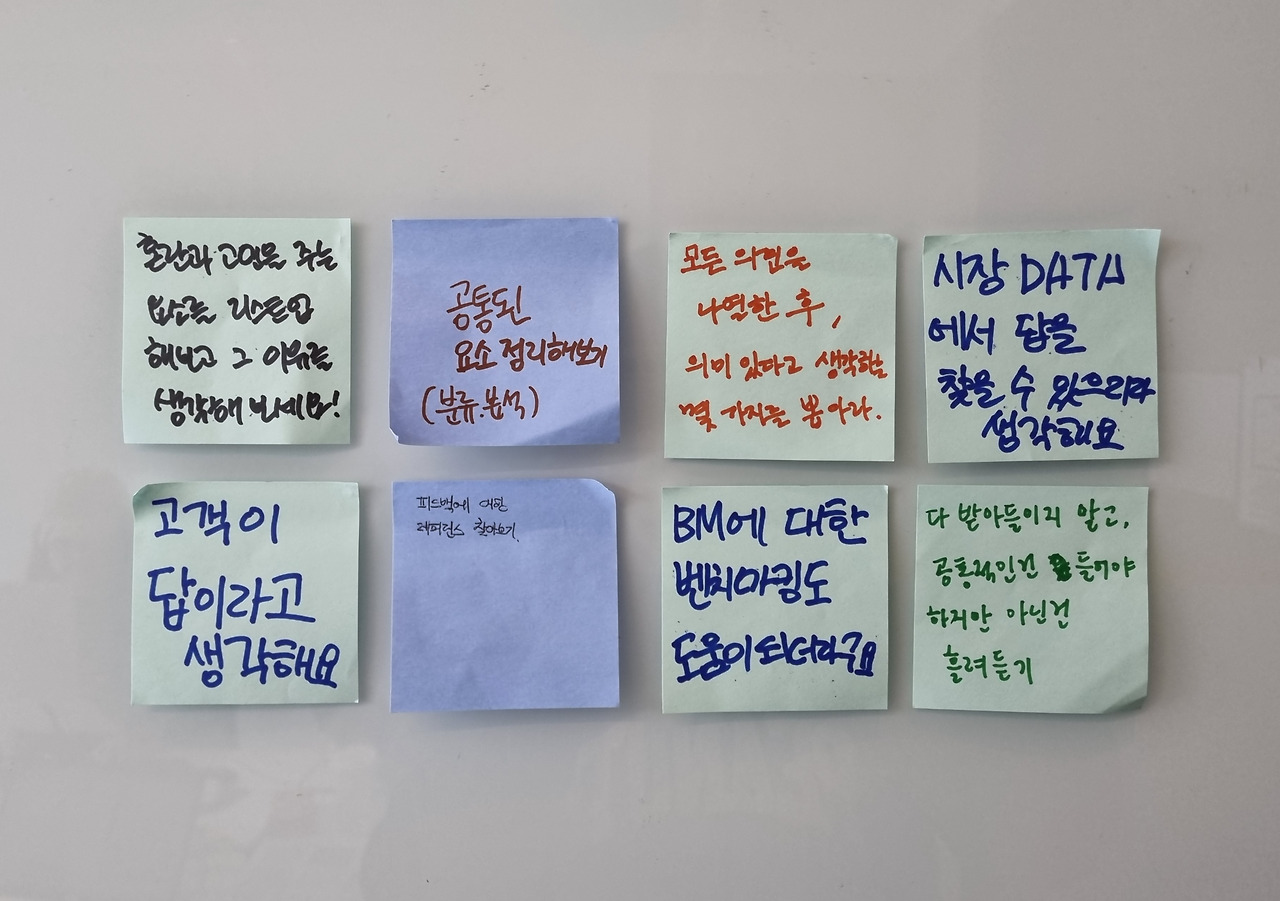 혼란과 고민을 주는
요소를 리스트업
해보고 그 이유를
생각해 보세요!
공통된
요소 정리해보기
(분류.분석)
모든 의견을
나열한 후,
의미 있다고 생각하는
몇 가지를 뽑아라.
시장 DATA
에서 답을
찾을 수 있으리라
생각해요
고객이
답이라고
생각해요
피드백에 대한
레퍼런스 찾아보기.
BM에 대한
벤치마킹도
도움이 되더라구요
다 받아들이지 말고,
공통적인건 들어야
하지만 아닌건
흘려듣기